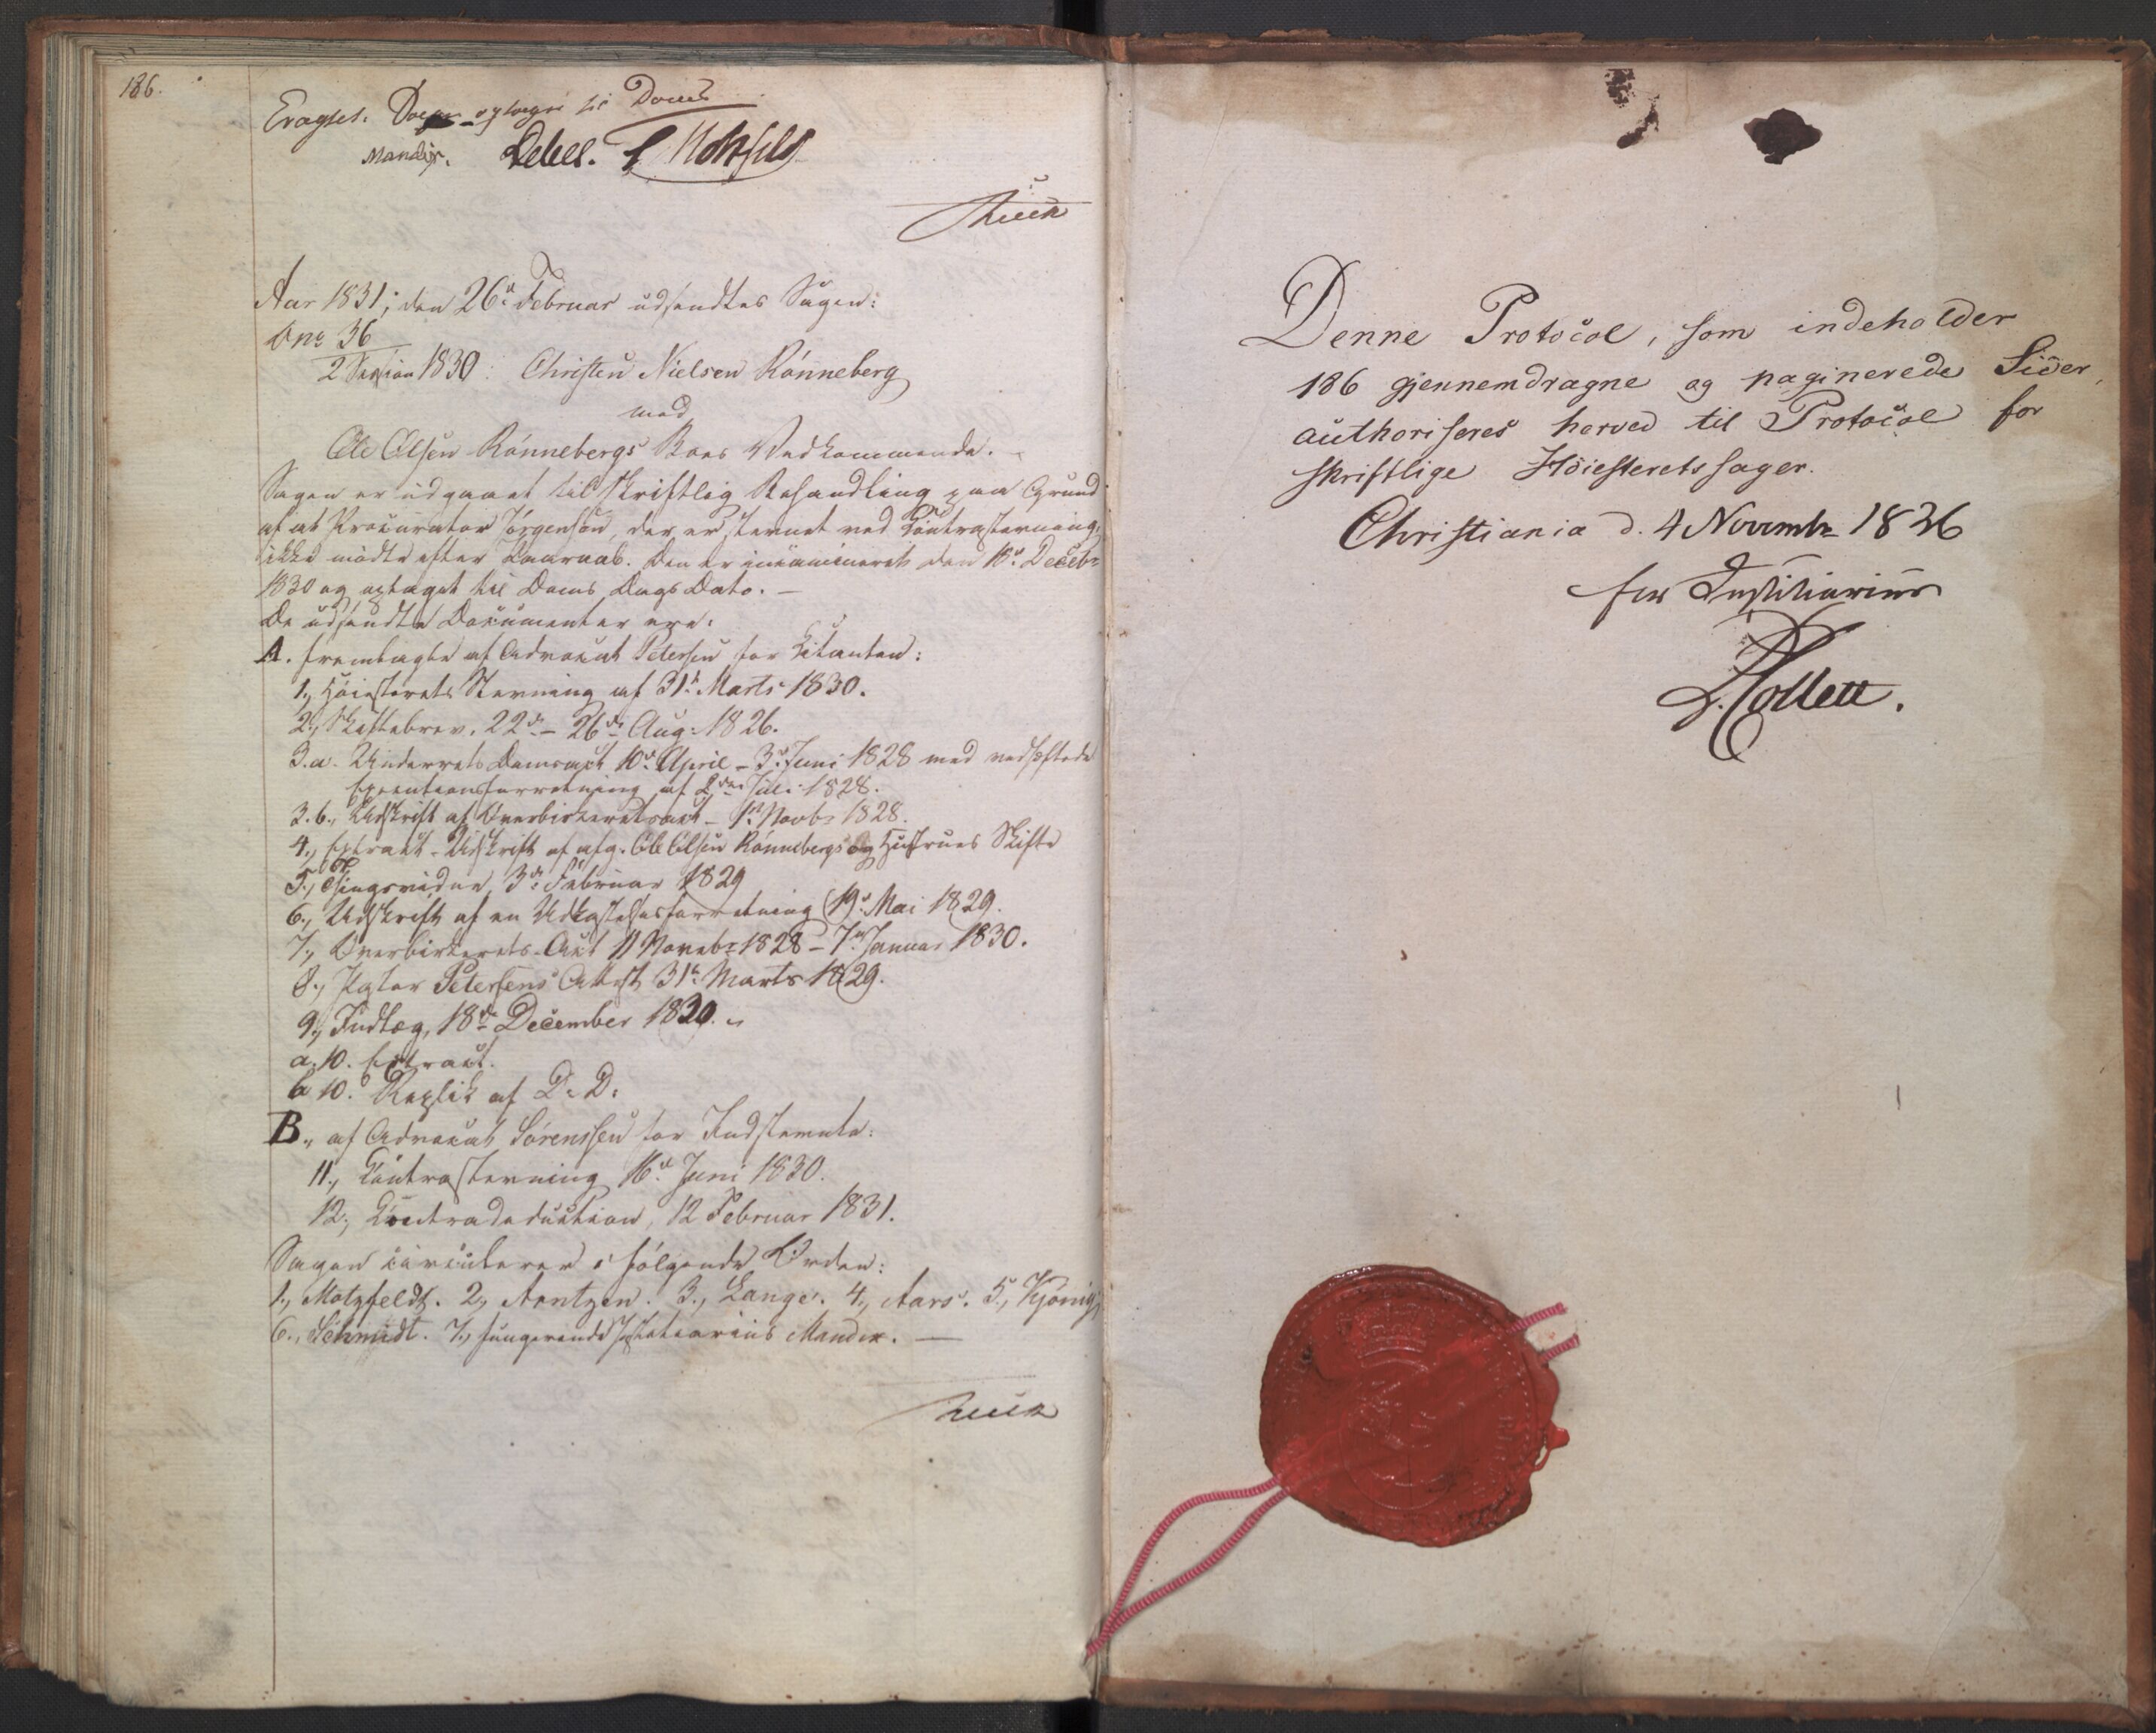 186.
Eragtet. Sagen optages til Doms
Mandix. Debes. Motzfeldt
Aar 1831, den 26de Februar udsendtes Sagen:
No 36
2 Session 1830: Christen Nielsen Rönneberg
mod
Ole Olsen Rönnebergs Boes Vedkommende.
Sagen er udgaaet til skriftlig Behandling paa Grund
af at Procurator Jörgensen, der er stevnet ved Contrastevning,
ikke mödte efter Laurdab. Den er incamineret den 10de Decebr
1830 og optaget til Doms Dags Dato. —
De udsendte Documenter ere:
A. fremlagte af Advocat Petersen for Citanten:
1., Höiesterets Stevning af 31te Marts 1830.
2., Skiftebrev, 22de – 26de Aug: 1826.
3.a. Underrets Domsact 10de April – 3de Juni 1828 med vedheftede
Executionsforretning af 2den Juli 1828.
3.b., Udskrift af Overbirkeretsact – 1ste Novbr 1828.
4., Extract-Udskrift af afg. Ole Olsen Rönnebergs og Hustrues Skifte
5., Et Thingsvidne, 3de Februar 1829
6., Udskrift af en Udkastelsesforretning 19de Mai 1829.
7., Overbirkerets-Act 11 Novebr 1828 – 7de Januar 1830.
8., Pastor Petersens Attest 31te Marts 1829.
9., Indlæg, 18de December 1830.
a. 10. Extract.
b 10. Replik af D. D.
B., af Advocat Sörenssen for Indstevnte:
11., Contrastevning 16de Juni 1830.
12., Contradeduction, 12 Februar 1831.
Sagen circulerer i fölgende Orden:
1., Motzfeldt. 2., Arntzen. 3., Lange. 4., Aars. 5., Kjönig,
6., Schmidt. 7., fungerende Justitiarius Mandix. —
Denne Protocol, som indeholder
186 gjennemdragne og paginerede Sider,
authoriseres herved til Protocol for
skriftlige Höiesteretssager.
Christiania d. 4 Novembr 1826
for Justitiarius
J. Collett.